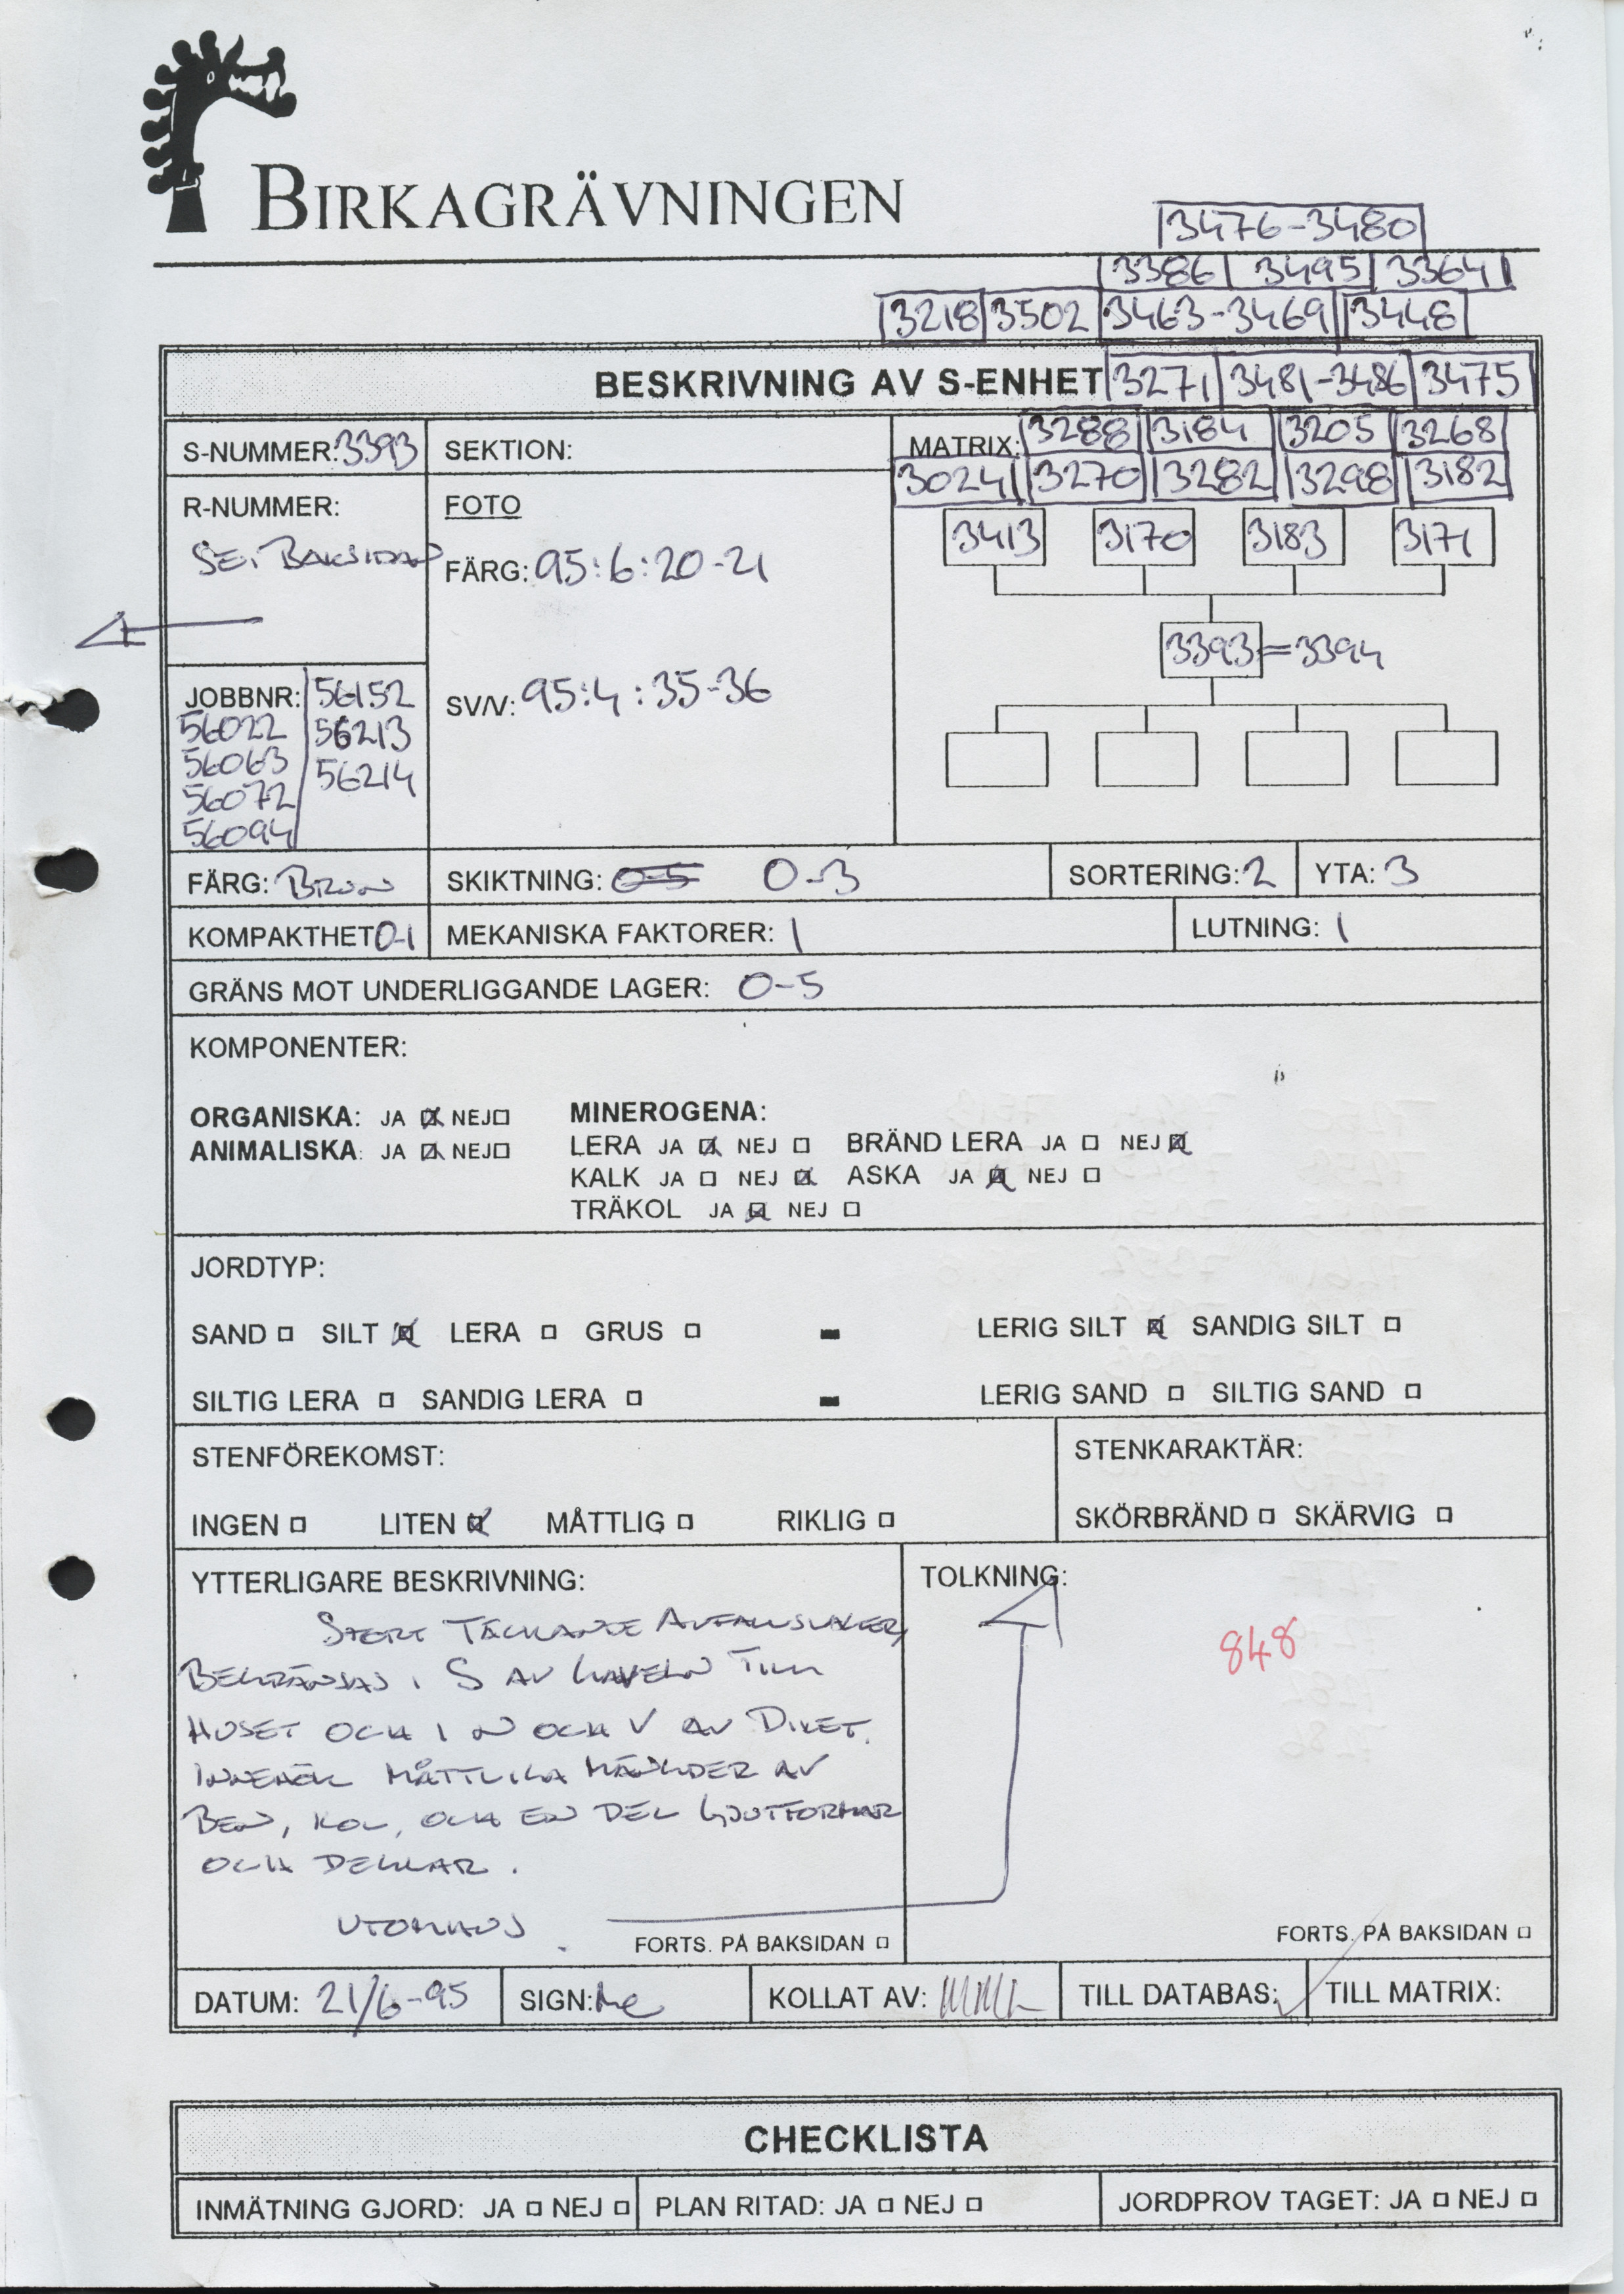 BIRKAGRÄVNINGEN
3476-3480
3386 3495 3364
3218 3502 3463-3469 3448
BESKRIVNING AV S-ENHET 3271 3481-3486 3475
S-NUMMER: 3393 SEKTION: MATRIX: 3288 3184 3205 3268
3024 3270 3282 3298 3182
R-NUMMER: FOTO
SE: BAKSIDAN FÄRG: 95:6:20-21 3413 3170 3183 3171
3393 = 3394
JOBBNR: 56152 SV/V: 95:4:35-36
56022 56213
56063 56214
56072
56094
FÄRG: BRUN SKIKTNING: 0-5 0-3 SORTERING: 2 YTA: 3
KOMPAKTHET 0-1 MEKANISKA FAKTORER: 1 LUTNING: 1
GRÄNS MOT UNDERLIGGANDE LAGER: 0-5
KOMPONENTER:
ORGANISKA: JA NEJ MINEROGENA:
ANIMALISKA: JA NEJ LERA JA NEJ BRÄND LERA JA NEJ
KALK JA NEJ ASKA JA NEJ
TRÄKOL JA NEJ
JORDTYP:
SAND SILT LERA GRUS - LERIG SILT SANDIG SILT
SILTIG LERA SANDIG LERA - LERIG SAND SILTIG SAND
STENFÖREKOMST: STENKARAKTÄR:
INGEN LITEN MÅTTLIG RIKLIG SKÖRBRÄND SKÄRVIG
YTTERLIGARE BESKRIVNING: TOLKNING:
STORT TÄCKANDE AVFALLSLAGER,
BEGRÄNSAS I S AV GAVELN TILL
HUSET OCH I N OCH V AV DIKET.
INNEHÖLL MÅTTLIGA MÄNGDER AV
BEN, KOL, OCH EN DEL GJUTFORMAR
OCH DEGLAR.
UTOMHUS
848
FORTS. PÅ BAKSIDAN FORTS. PÅ BAKSIDAN
DATUM: 21/6-95 SIGN: KOLLAT AV: TILL DATABAS: TILL MATRIX:
CHECKLISTA
INMÄTNING GJORD: JA NEJ PLAN RITAD: JA NEJ JORDPROV TAGET: JA NEJ